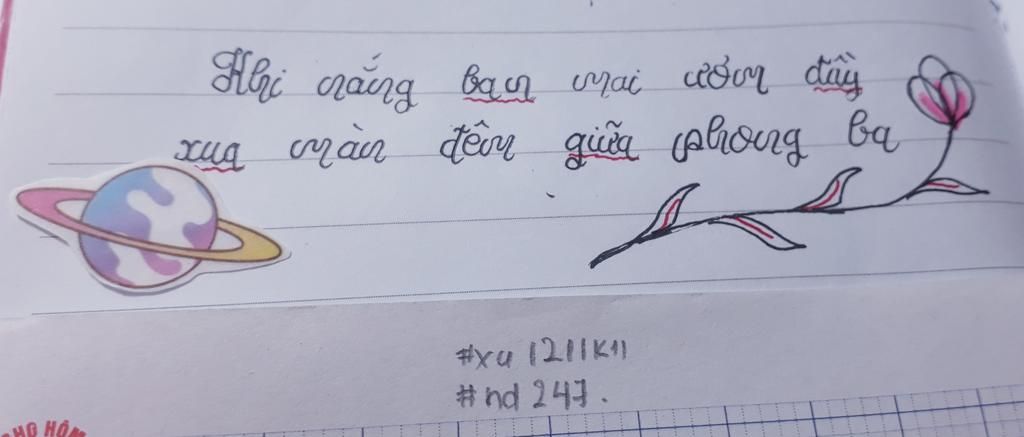 Khi nắng ban mai ươm đầy
xua màn đêm giữa phong ba
#xu 1211K11
#nd 247.
NG HÔM